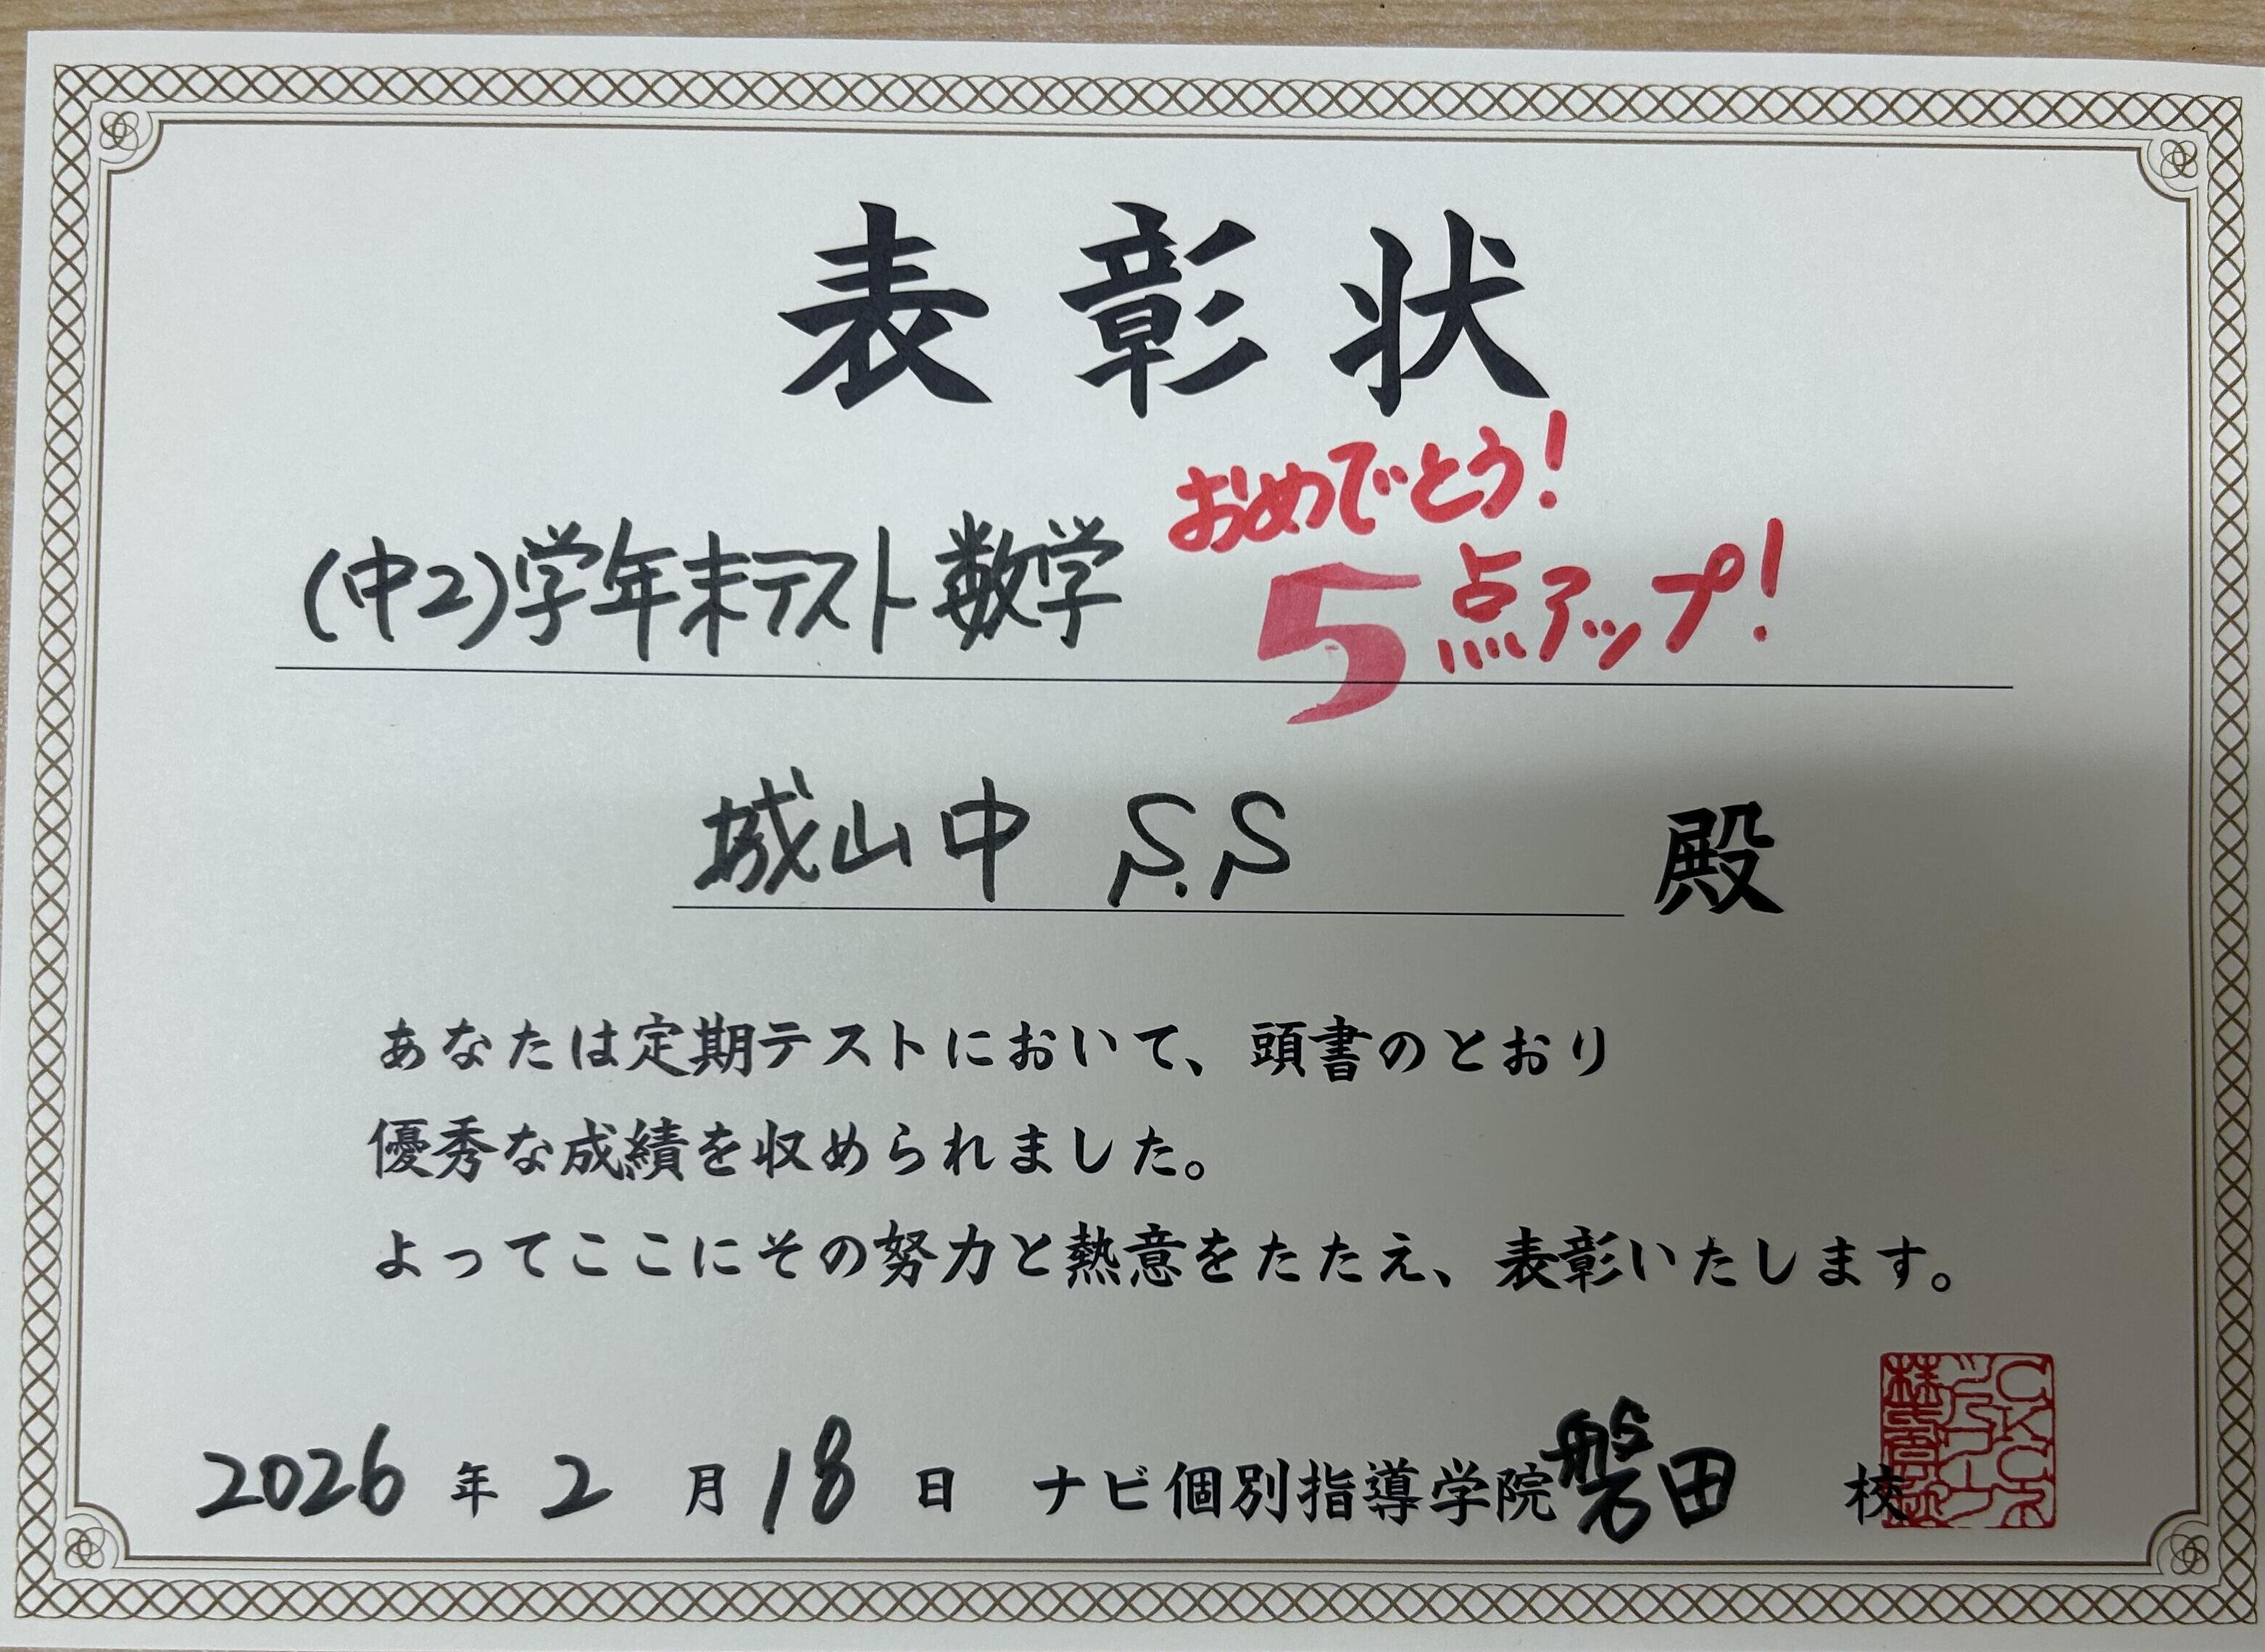 表彰状
おめでとう!
(中2)学年末テスト数学 5点アップ!
城山中 S.S 殿
あなたは定期テストにおいて、頭書のとおり
優秀な成績を収められました。
よってここにその努力と熱意をたたえ、表彰いたします。
2026年2月18日 ナビ個別指導学院磐田校